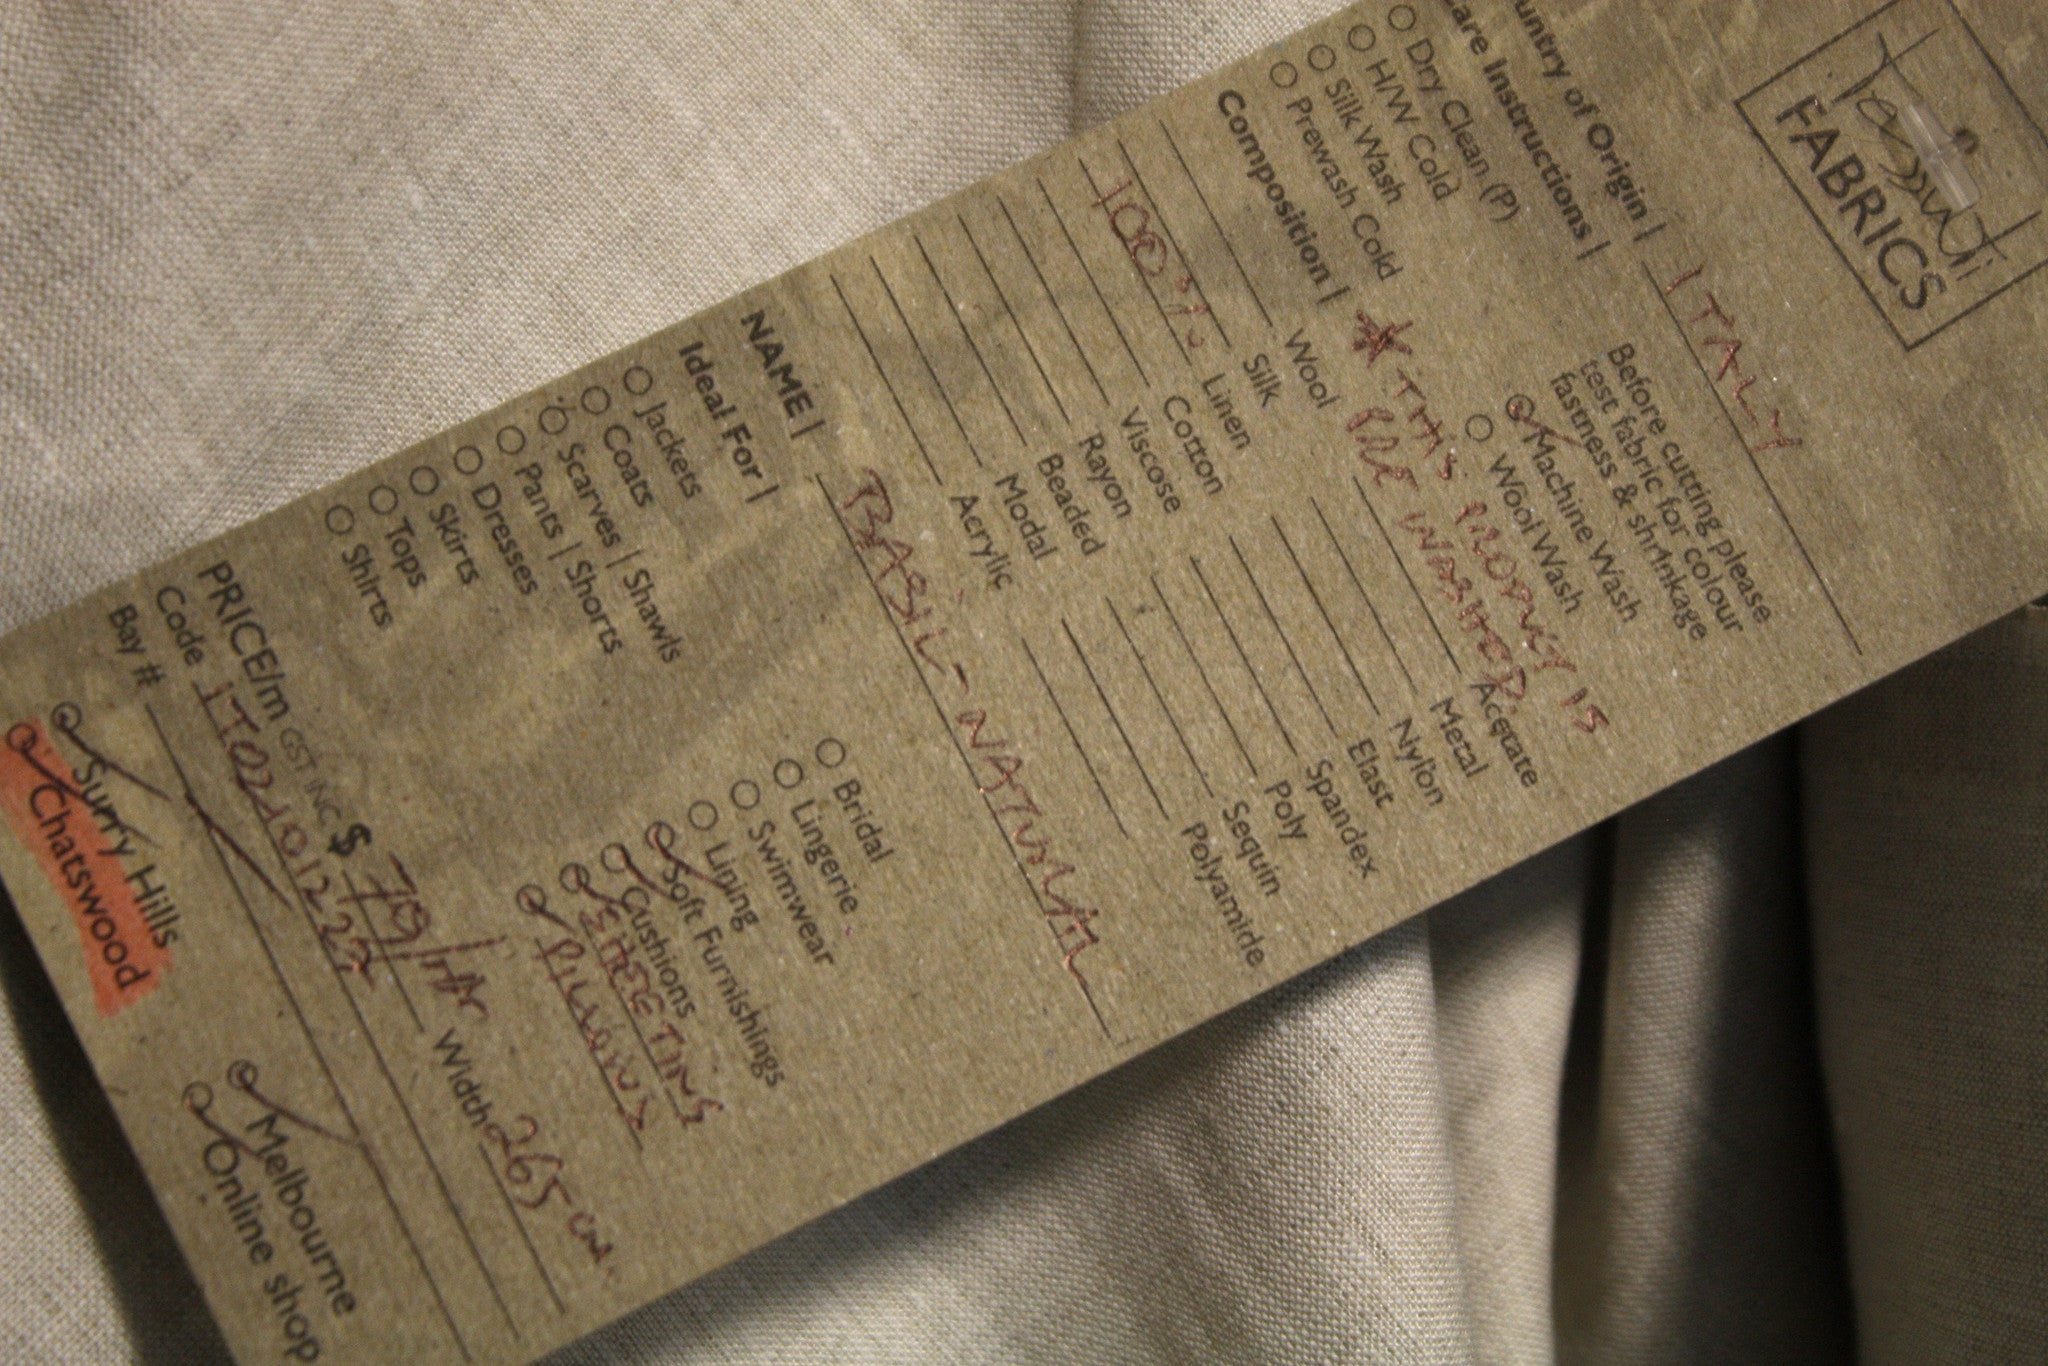 Tessuti
FABRICS
untry of Origin | ITALY
are Instructions |
Before cutting please
test fabric for colour
fastness & shrinkage
Dry Clean (P)
H/W Cold
Silk Wash
Prewash Cold
Machine Wash
Wool Wash
Composition |
* THIS PRODUCT IS
PRE WASHED.
Wool
Silk
100% Linen
Cotton
Viscose
Rayon
Beaded
Modal
Acrylic
Acetate
Metal
Nylon
Elast
Spandex
Poly
Sequin
Polyamide
NAME | BASIL-NATURAL
Ideal For |
Jackets
Coats
Scarves | Shawls
Pants | Shorts
Dresses
Skirts
Tops
Shirts
Bridal
Lingerie
Swimwear
Lining
Soft Furnishings
Cushions
SHEETING
PRICE/m GST INC $ 79/ Width 265cm
Code
Bay #
Surry Hills
Chatswood
Melbourne
Online shop